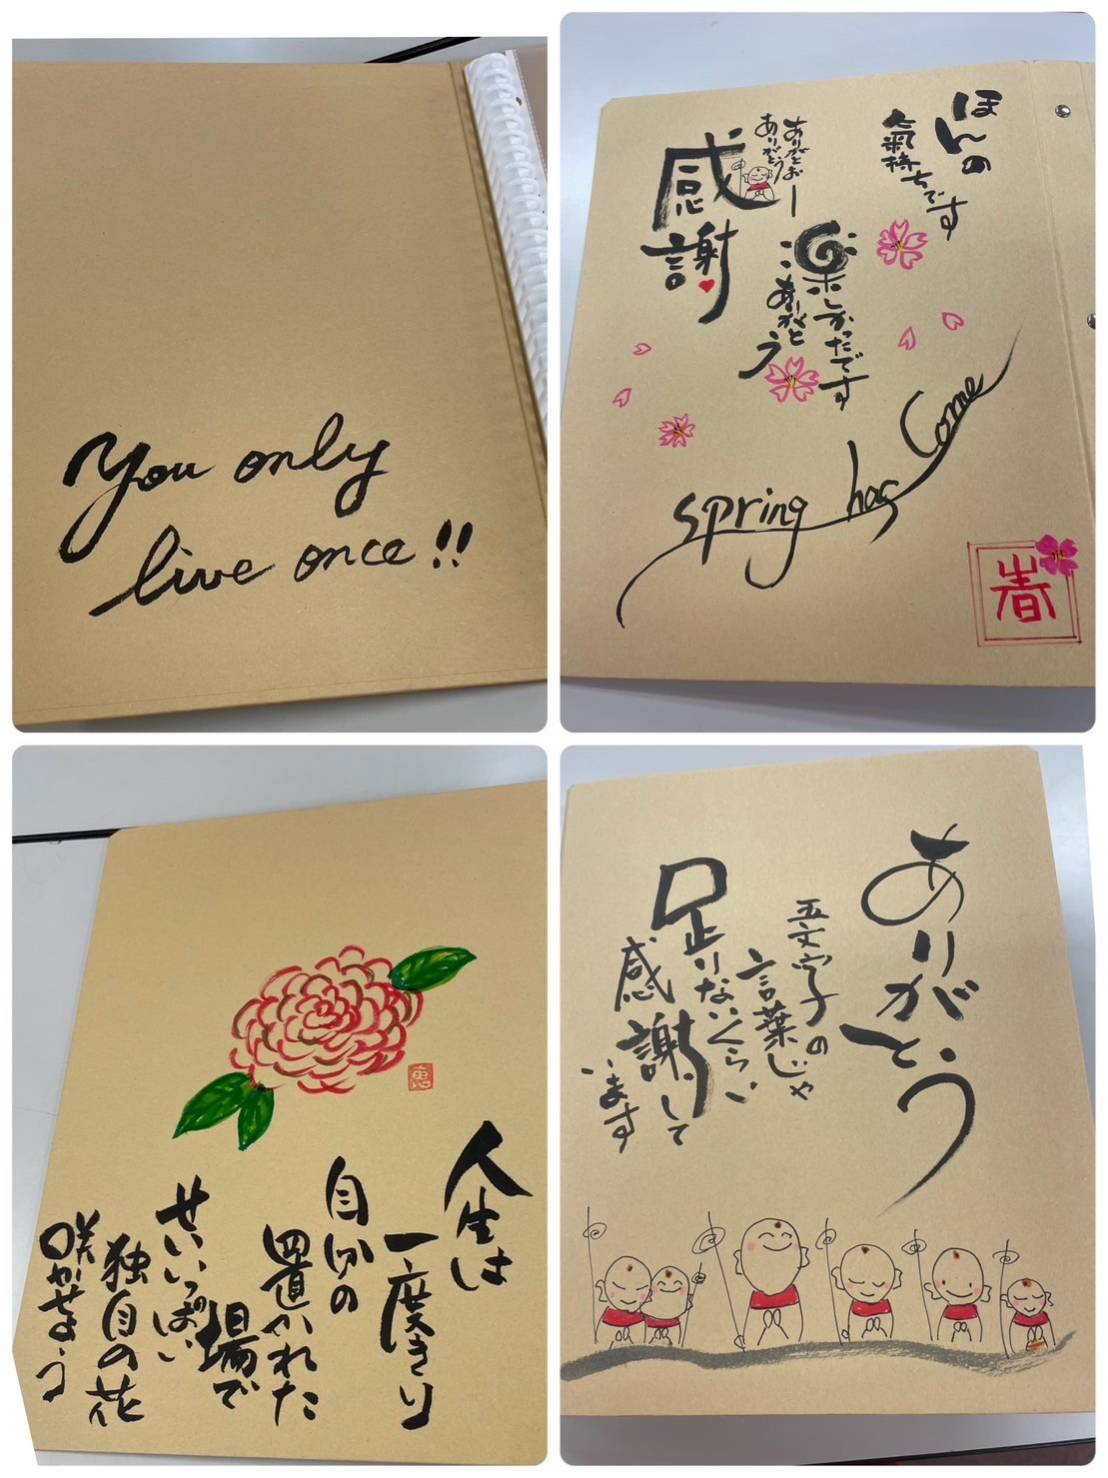 You only
live once!!
ほんの
気持ちです
ありがとおー
ありがとう
感謝
楽しかったです
ありがとう
spring has come
春
人生は
一度きり
自分の
置かれた
場で
せいいっぱい
独自の花
咲かせよう
恵
ありがとう
五文字の
言葉じゃ
足りないくらい
感謝して
います